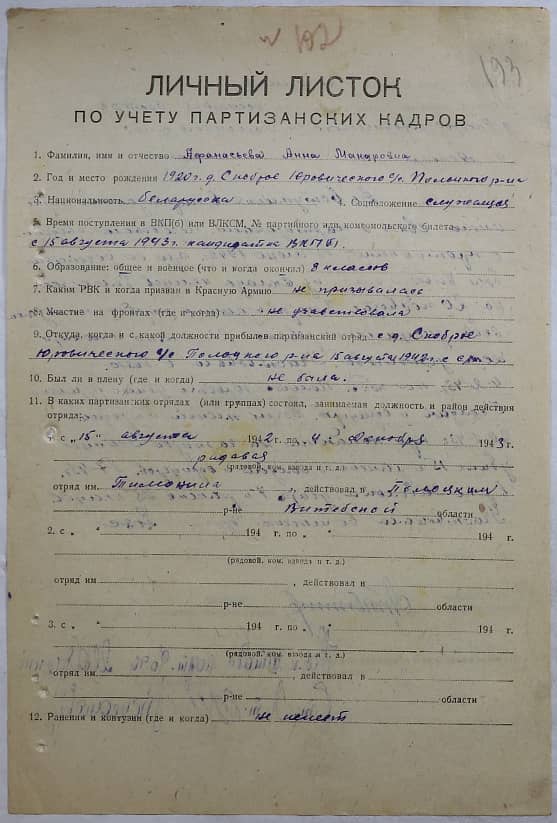 192
193
ЛИЧНЫЙ ЛИСТОК
ПО УЧЕТУ ПАРТИЗАНСКИХ КАДРОВ
1. Фамилия, имя и отчество Афанасьева Анна Макаровна
2. Год и место рождения 1920 г. д. Скоброе Юровического с/с. Полоцкого р-на
3. Национальность белоруска 4. Соцположение служащая
5. Время поступления в ВКП(б) или ВЛКСМ, № партийного или комсомольского билета
с 15 августа 1943 г. кандидатка ВКП(б).
6. Образование: общее и военное (что и когда окончил) 8 классов
7. Каким РВК и когда призван в Красную Армию не призывалась
8. Участие на фронтах (где и когда) не участвовала
9. Откуда, когда и с какой должности прибыл в партизанский отряд с д. Скоброе
Юровического с/с Полоцкого р-на 15 августа 1942 г. с
10. Был ли в плену (где и когда) не была.
11. В каких партизанских отрядах (или группах) состоял, занимаемая должность и район действия
отряда:
1. с „15" августа 1942 г. по „4" декабря 1943 г.
рядовая
(рядовой, ком. взвода и т. д.)
отряд им. Тимонина, действовал в Полоцким
р-не Витебской области
2. с „ " 194 г. по „ " 194 г.
(рядовой, ком. взвода и т. д.)
отряд им. , действовал в
р-не области
3. с „ " 194 г. по „ " 194 г.
(рядовой, ком. взвода и т. д.)
отряд им. , действовал в
р-не области
12. Ранения и контузии (где и когда) не имеет